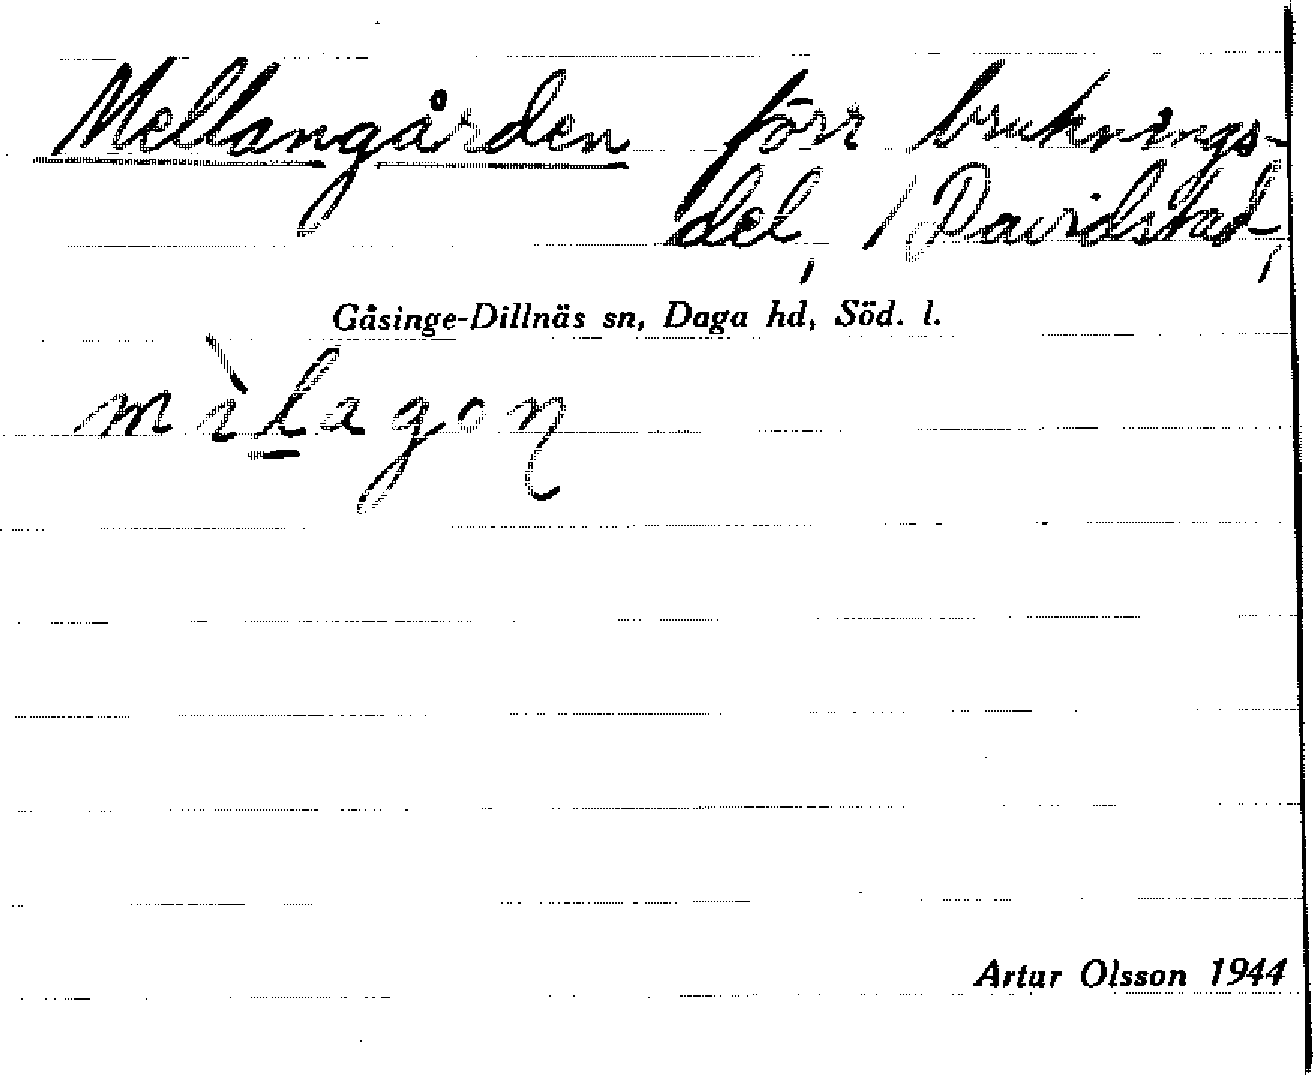 Mellangården förr bruknings-
del, i Davidstad,
Gåsinge-Dillnäs sn, Daga hd, Söd. l.
mìlagoŋ
Artur Olsson 1944